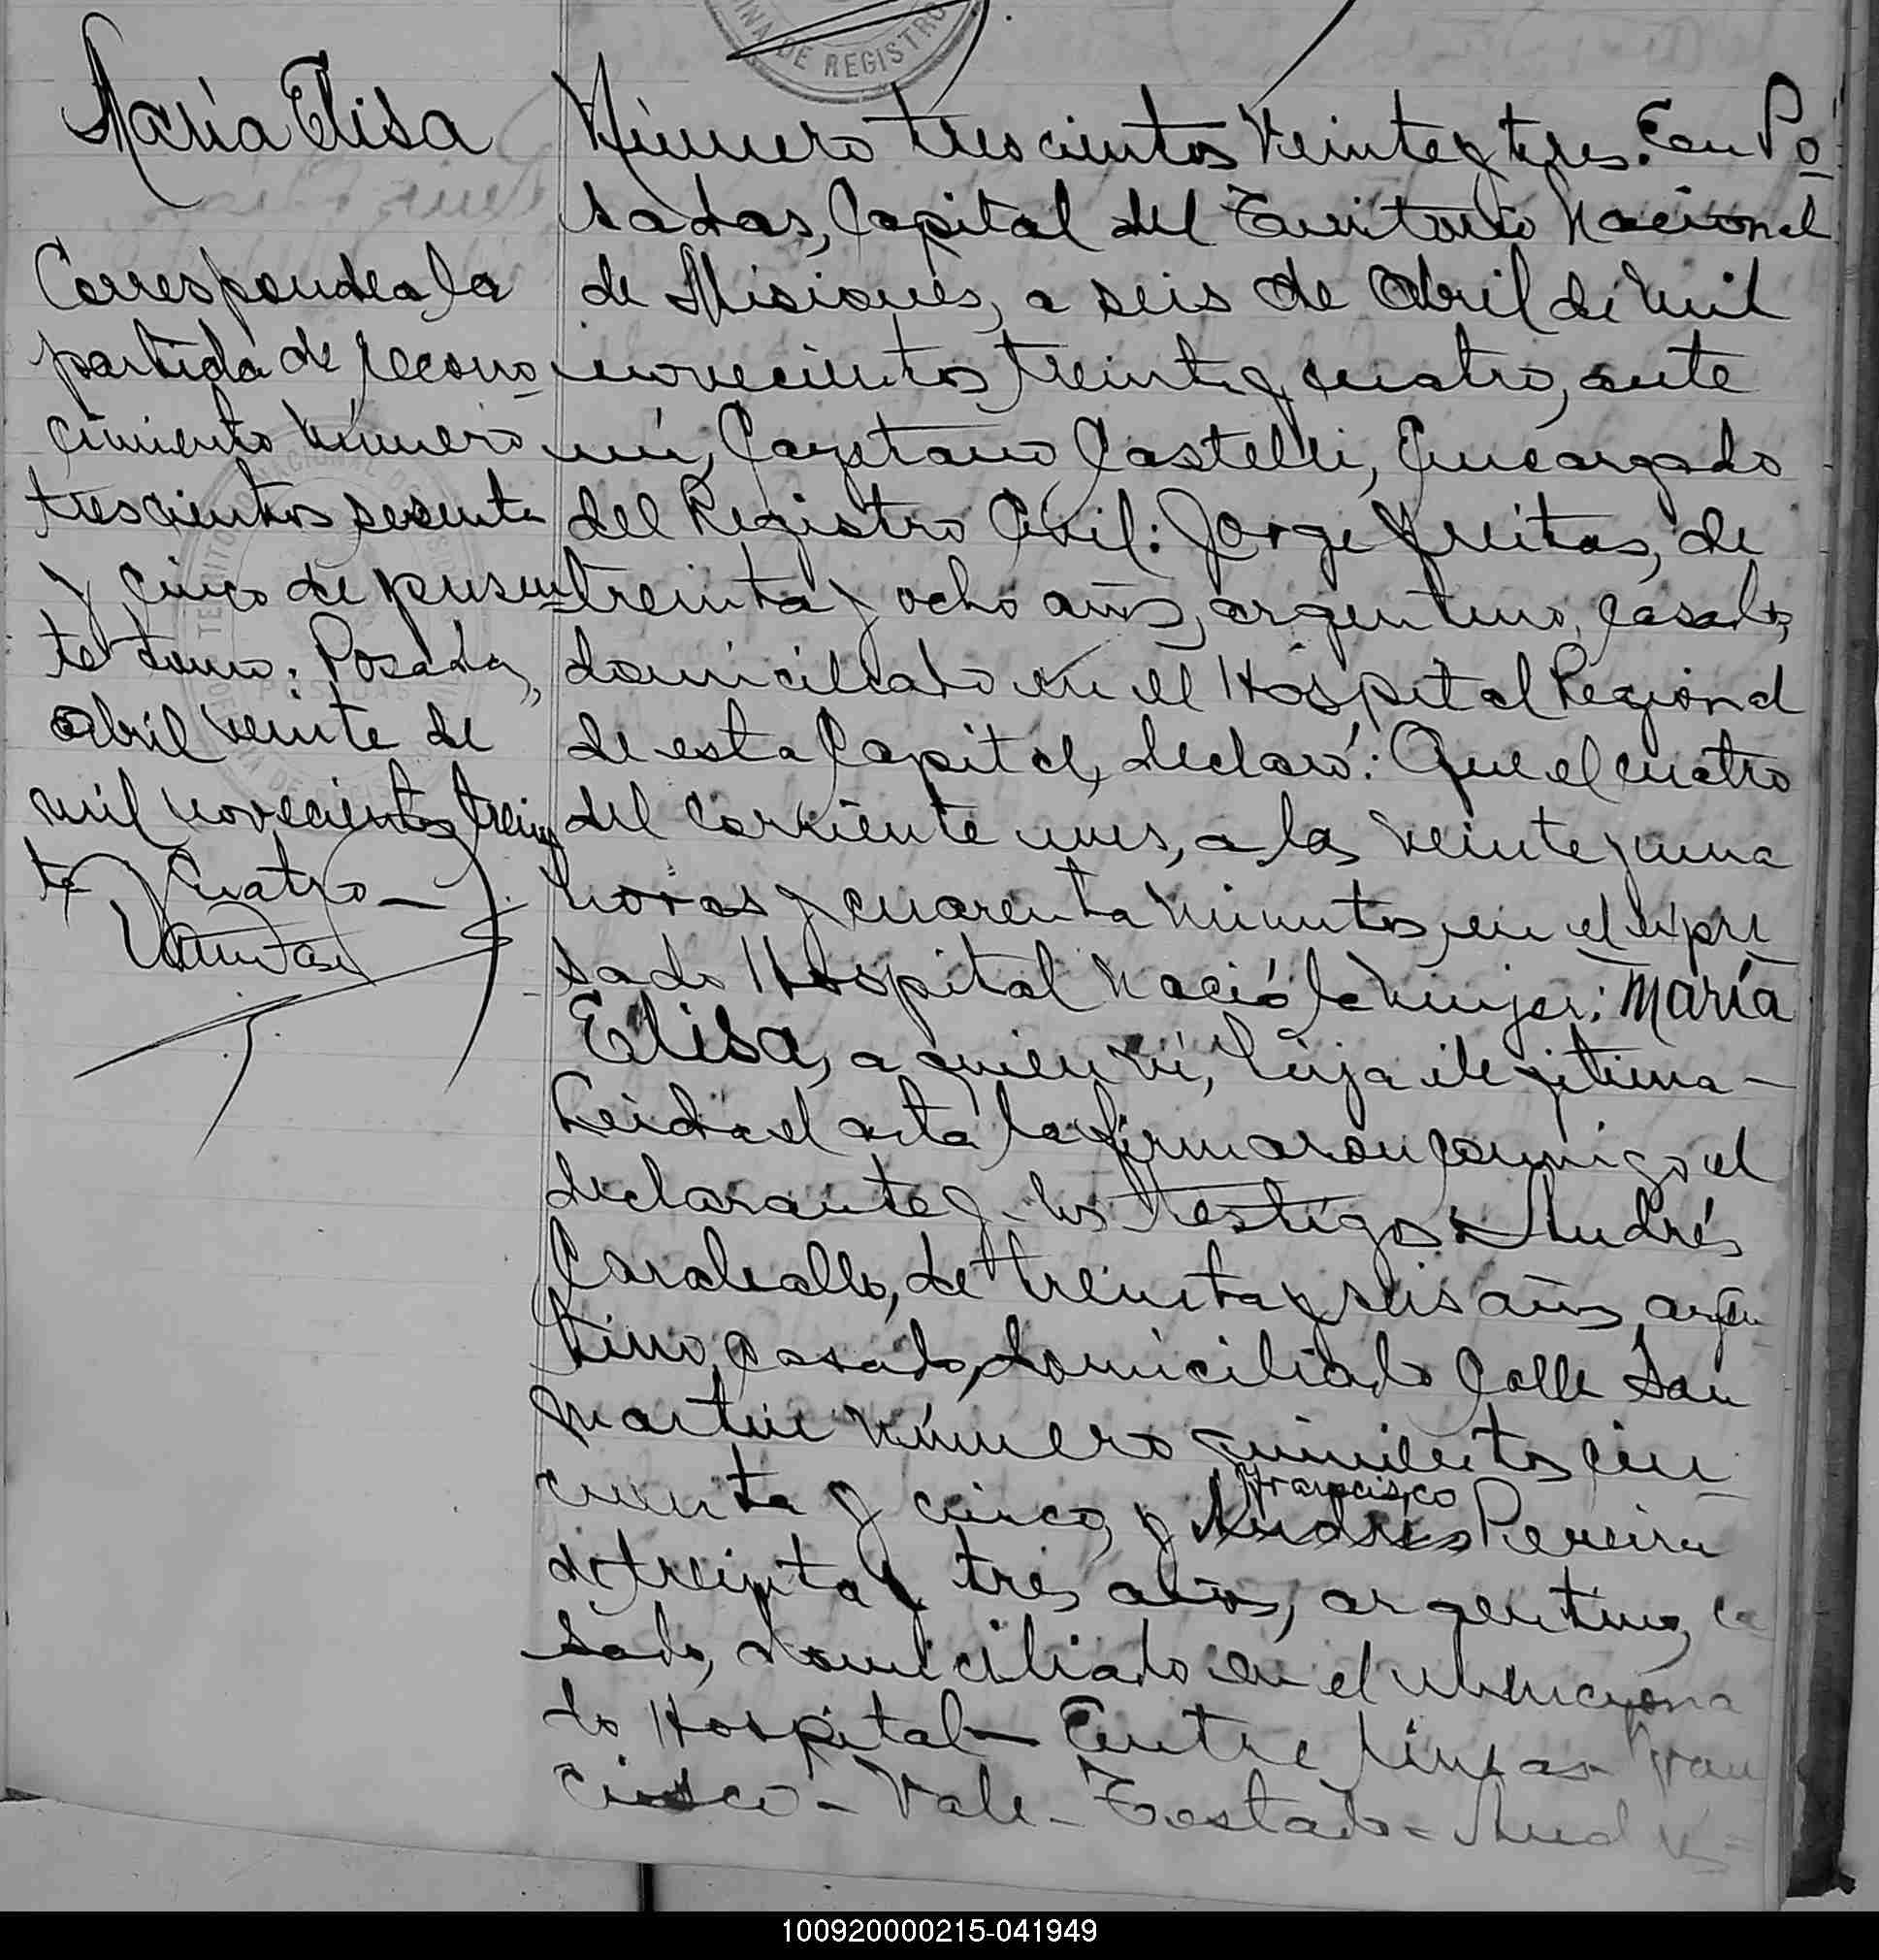 María Elisa
Corresponde a la
partida de recono
cimiento número
trescientos sesenta
y cinco de presen
te tomo. Posadas,
abril veinte de
mil novecientos trein
ta y cuatro—
Número trescientos veinte y tres. En Po
sadas, Capital del Territorio Nacional
de Misiones, a seis de abril de mil
novecientos treinta y cuatro, ante
mí, Cayetano Castelli, Encargado
del Registro Civil: Jorge Freitas, de
treinta y ocho años, argentino, casado,
domiciliado en el Hospital Regional
de esta Capital, declaró: Que el cuatro
del corriente mes, a las veinte y una
horas y cuarenta minutos, en el expre
sado Hospital nació la mujer: María
Elisa, a quien ví, hija ilegitima—
Leida el acta la firmaron conmigo el
declarante y los testigos: Andrés
de treinta y seis años, argen
tino, casado, domiciliado calle San
Martín número quinientos cin
cuenta y cinco, y Francisco
Andrés Pereira
de treinta y tres años, argentino, ca
sado, domiciliado en el menciona
do Hospital— Entre líneas- Fran
cisco- Vale- Testado- Andrés-
OFICINA DE REGISTRO
POSADAS
100920000215-041949